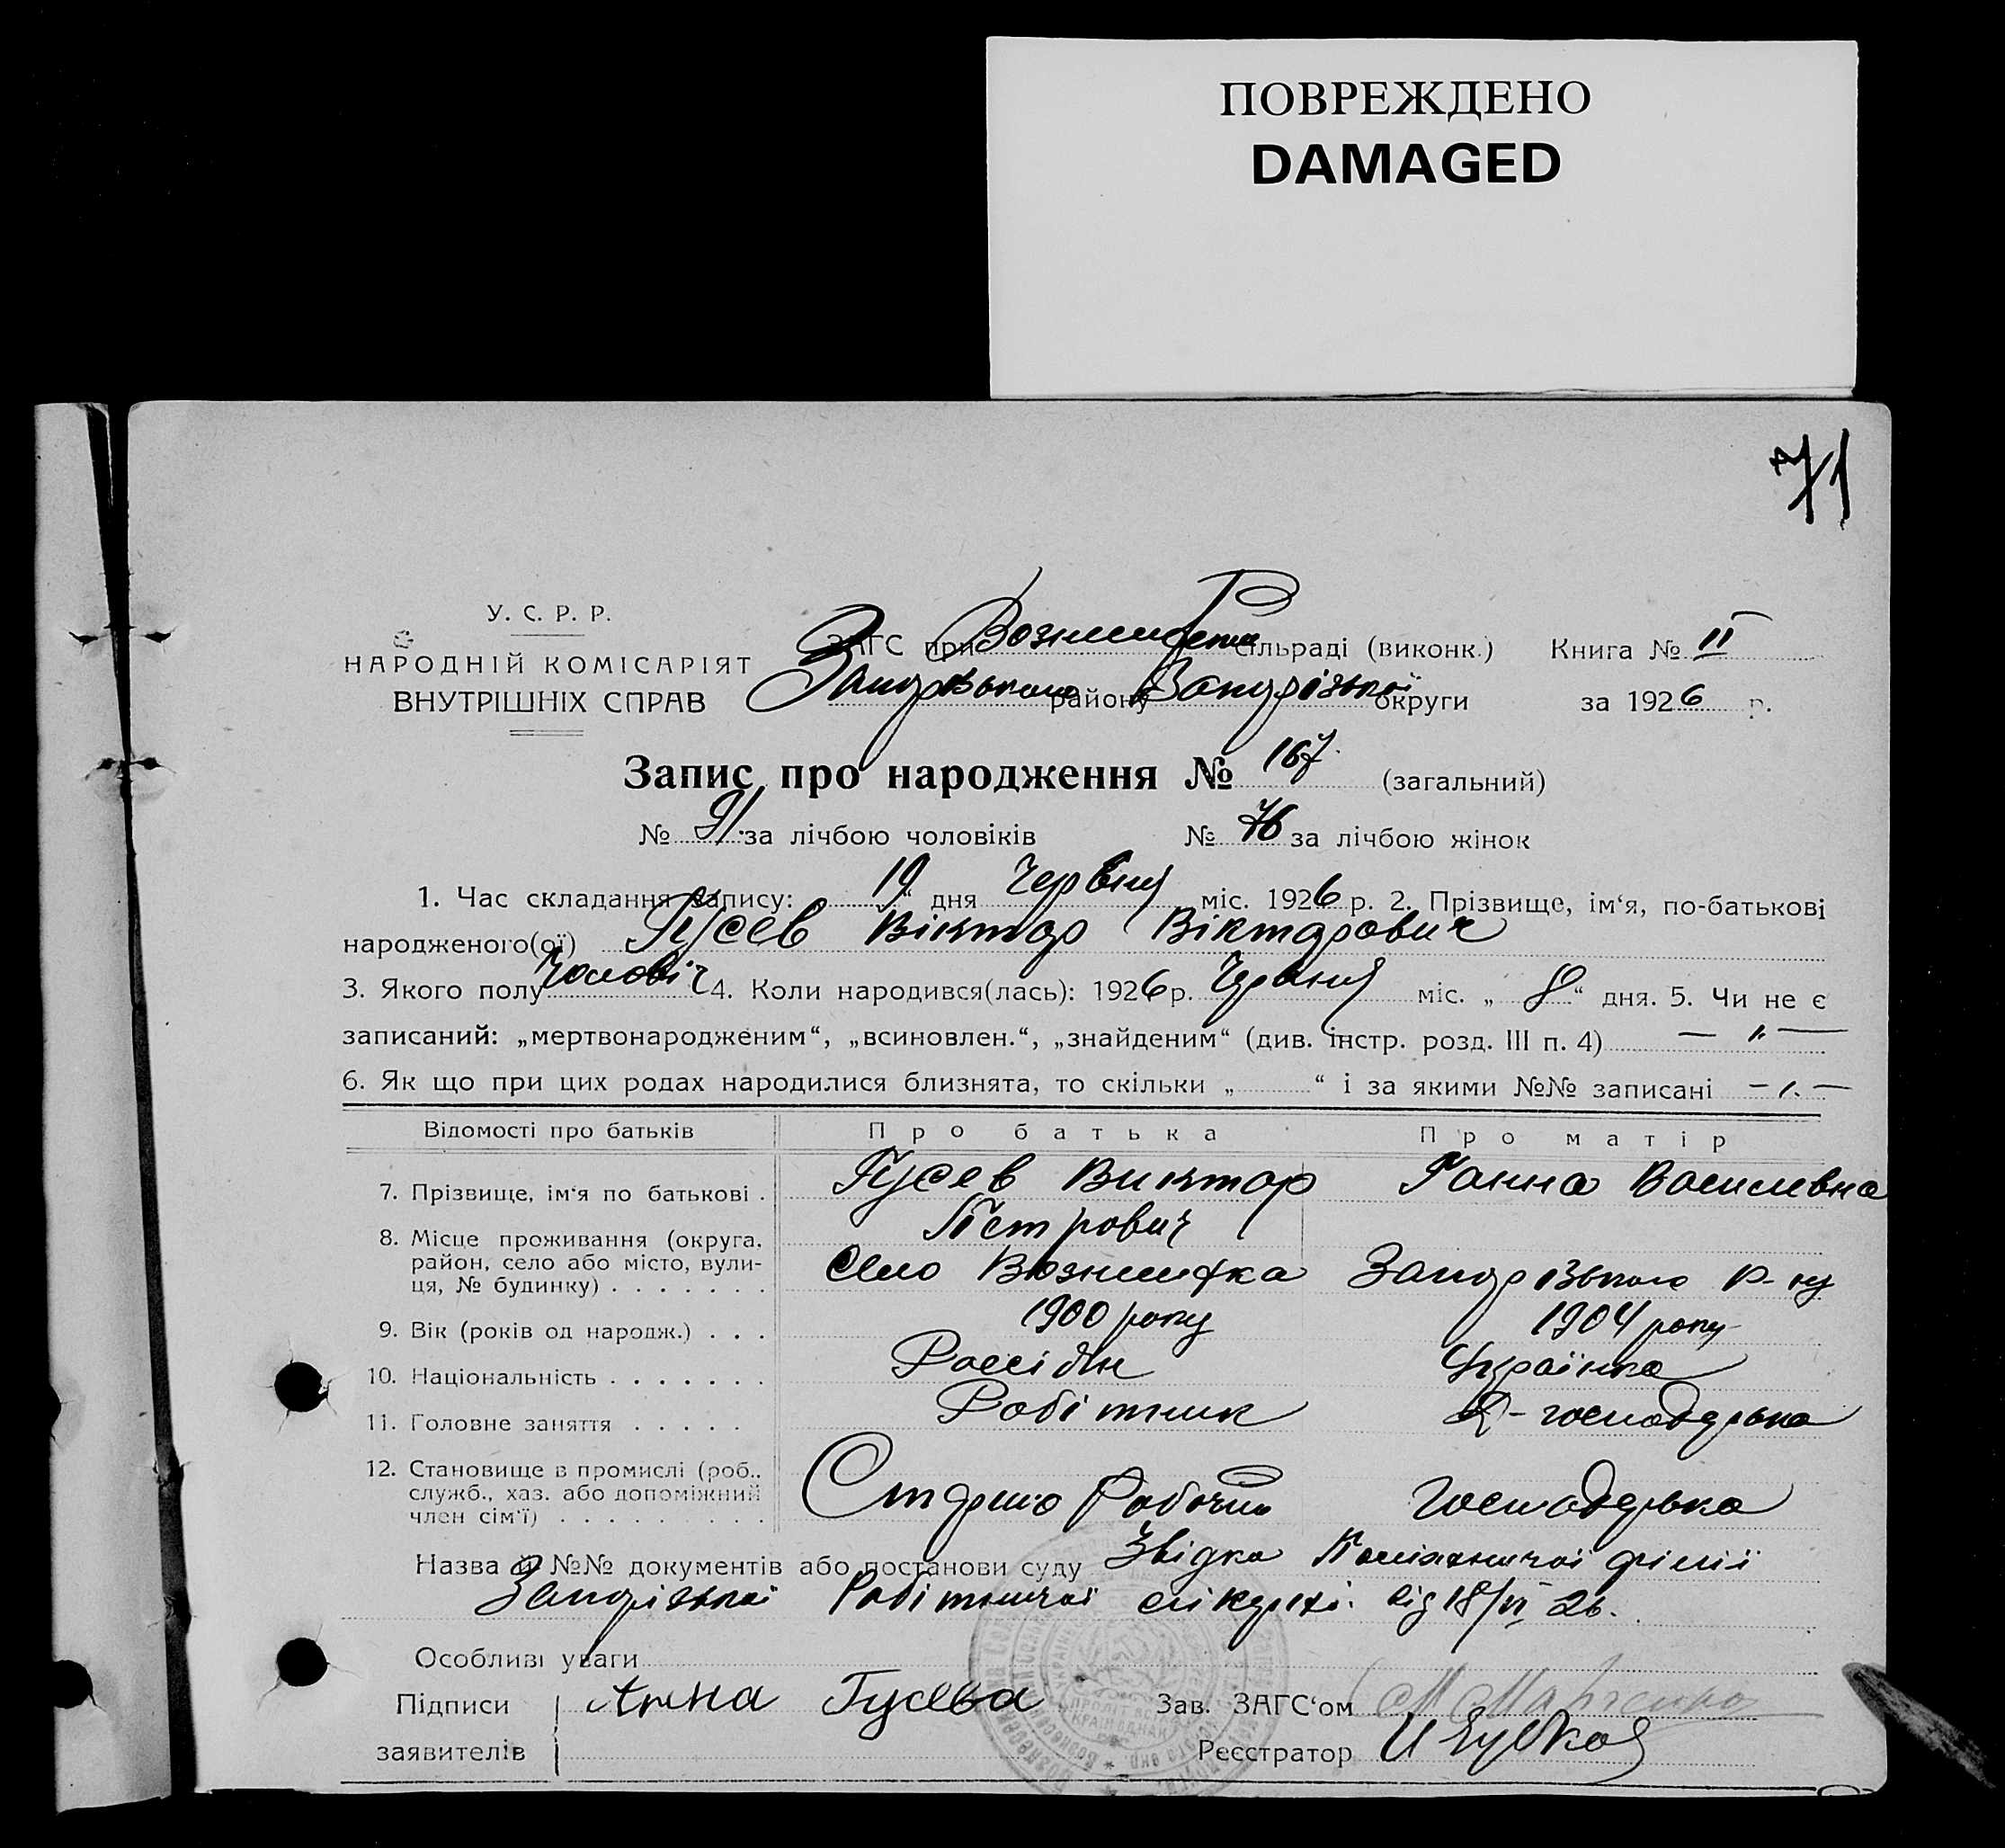 ПОВРЕЖДЕНО
DAMAGED
71
У. С. Р. Р.
НАРОДНІЙ КОМІСАРІЯТ
ВНУТРІШНІХ СПРАВ
ЗАГС при сільраді (виконк.) Книга № II
району Запорізької округи за 1926 р.
Запис про народження № 167 (загальний)
№ 91 за лічбою чоловіків № 76 за лічбою жінок
1. Час складання запису: 19 “ дня Червня міс. 1926 р. 2. Прізвище, ім‘я, по-батькові
народженого(ої) Гусев Віктор Вікторович
3. Якого полу Чоловіч 4. Коли народився(лась): 1926 р. Червня міс. „ 8 “ дня. 5. Чи не є
записаний: „мертвонародженим“, „всиновлен.“, „знайденим“ (див. інстр. розд. III п. 4) — „ —
6. Як що при цих родах народилися близнята, то скільки „ “ і за якими №№ записані
Відомості про батьків Про батька Про матір
7. Прізвище, ім‘я по батькові . Гусев Виктор Ганна Василивна
Петрович
8. Місце проживання (округа, район, село або місто, вулиця, № будинку) . . . . . . . Село Вознесенка Запорізького р-ну
9. Вік (років од народж.) . . . 1900 року 1904 року
10. Національність . . . . . . . Россіян Українка
11. Головне заняття . . . . . Робітник Д-господарька
12. Становище в промислі (роб., служб., хаз. або допоміжний член сім‘ї) . . . . . . . . . Господарька
Назва й №№ документів або постанови суду Звідка філії
Запорізької Робітничої від 18/VI 26.
Особливі уваги
Підписи Анна Гусева Зав. ЗАГС‘ом М Марченко
заявителів Реєстратор